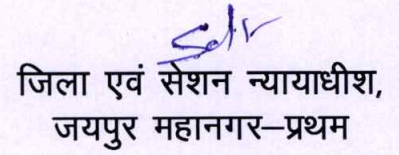 Sd/-
जिला एवं सेशन न्यायाधीश,
जयपुर महानगर–प्रथम